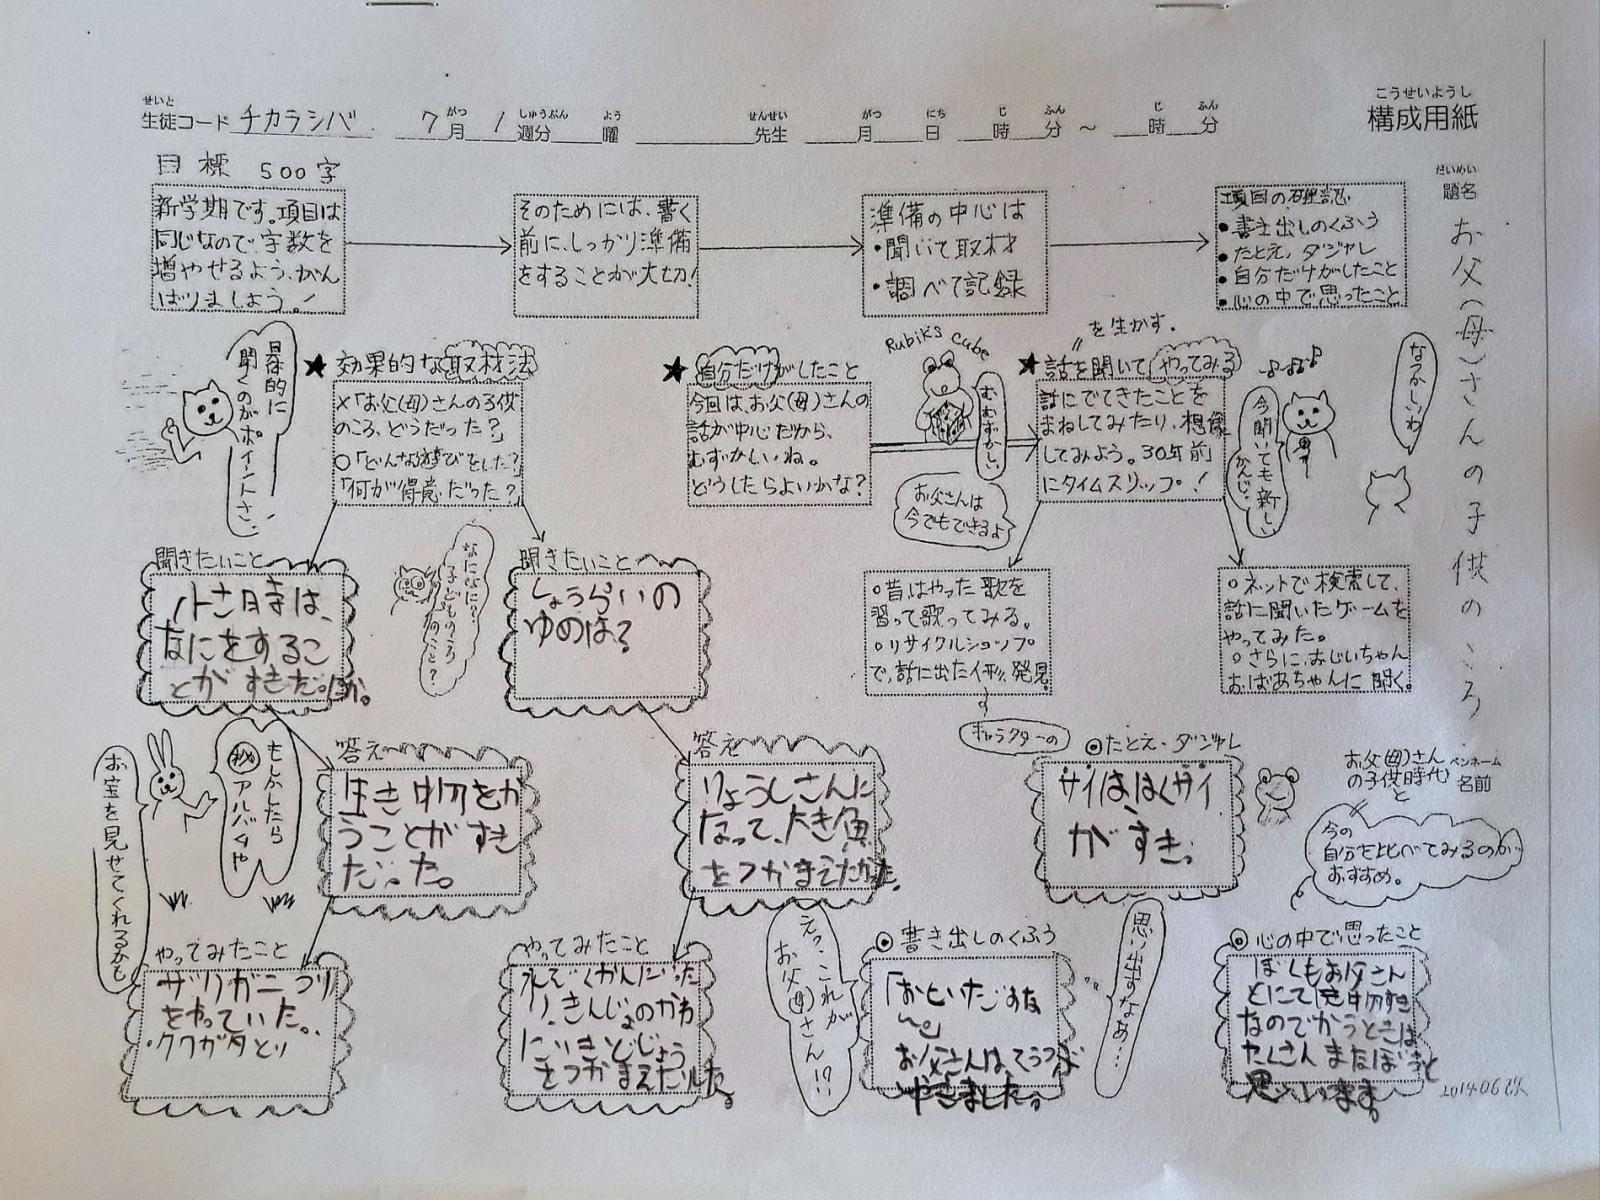 せいと
生徒コード チカラシバ 7月 1週分 曜 先生 月 日 時 分 ～ 時 分
がつ しゅうぶん よう せんせい がつ にち じ ふん じ ふん
こうせいようし
構成用紙
だいめい
題名
お父(母)さんの子供のころ
目標 500字
新学期です。項目は
同じなので、字数を
増やせるよう、がん
ばりましょう。!
そのためには、書く
前に、しっかり準備
をすることが大切!
準備の中心は
・聞いて取材
・調べて記録
項目の確認
・書き出しのくふう
・たとえ、ダジャレ
・自分だけがしたこと
・心の中で思ったこと
具体的に
聞くのがポイントさ。
★効果的な取材法
×「お父(母)さんの子供
のころ、どうだった?」
○「どんな遊びをした?」
「何が得意だった?」
★自分だけがしたこと
今回は、お父(母)さんの
話が中心だから、
むずかしいね。
どうしたらよいかな?
Rubik's Cube
むむずかしい
お父さんは
今でもできるよ
を生かす。
★話を聞いてやってみる
話にでてきたことを
まねしてみたり、想像
してみよう。30年前
にタイムスリップ!
今聞いても新しい
かんじ。
なつかしいわ。
聞きたいこと
小さい時は、
なにをするこ
とがすきだったか。
なになに?
子どものころ
のこと?
聞きたいこと
しょうらいの
ゆめは?
○昔はやった歌を
習って歌ってみる。
○リサイクルショップ
で、話に出た人形、発見。
キャラクターの
○ネットで検索して、
話に聞いたゲームを
やってみた。
○さらに、おじいちゃん
おばあちゃんに聞く。
もしかしたら
㊙アルバムや
お宝を見せてくれるかも
答え
生き物をか
うことがすき
だった。
答え
りょうしさんに
なって、大き魚
をつかまえたかった。
◎たとえ・ダジャレ
サイははくサイ
がすき。
お父(母)さん
の子供時代
と
今の
自分を比べてみるのが
おすすめ。
ペンネーム
名前
やってみたこと
ザリガニつり
をやっていた。
・クワガタとり
やってみたこと
すいぞくかんにいった
り、きんじょのかわ
にいきどじょう
をつかまえたりした。
えっ、これが
お父(母)さん!?
◎書き出しのくふう
思い出すなあ…
◎心の中で思ったこと
ぼくもお父さん
とにて生き物すき
なのでかうときは
たくさん
思います。